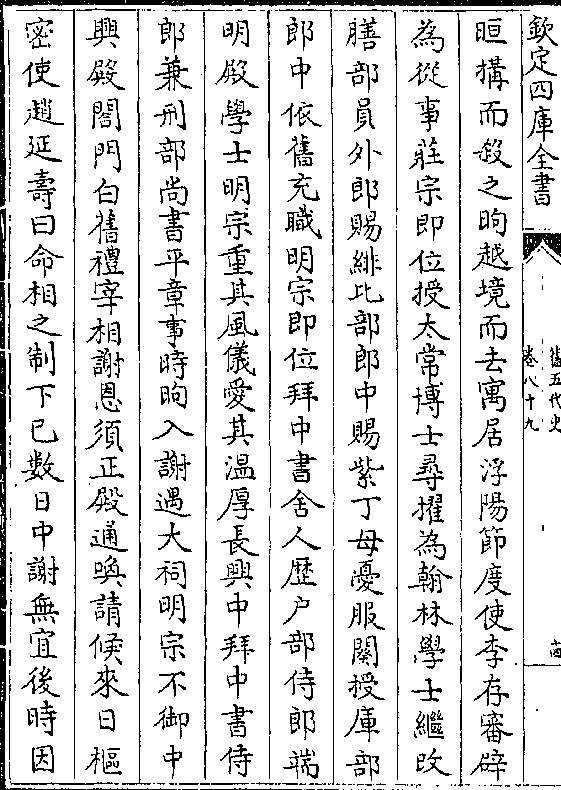 欽定四庫全書
舊五代史
卷八十九
十四
晅構而殺之昫越境而去寓居浮陽節度使李存審辟
為從事莊宗即位授太常博士尋擢為翰林學士繼改
膳部員外郎賜緋比部郎中賜紫丁母憂服闋授庫部
郎中依舊充職明宗即位拜中書舍人歴户部侍郎端
明殿學士明宗重其風儀愛其温厚長興中拜中書侍
郎兼刑部尚書平章事時昫入謝遇大祠明宗不御中
興殿閤門白舊禮宰相謝恩須正殿通喚請候來日樞
密使趙延壽曰命相之制下已數日中謝無宜後時因